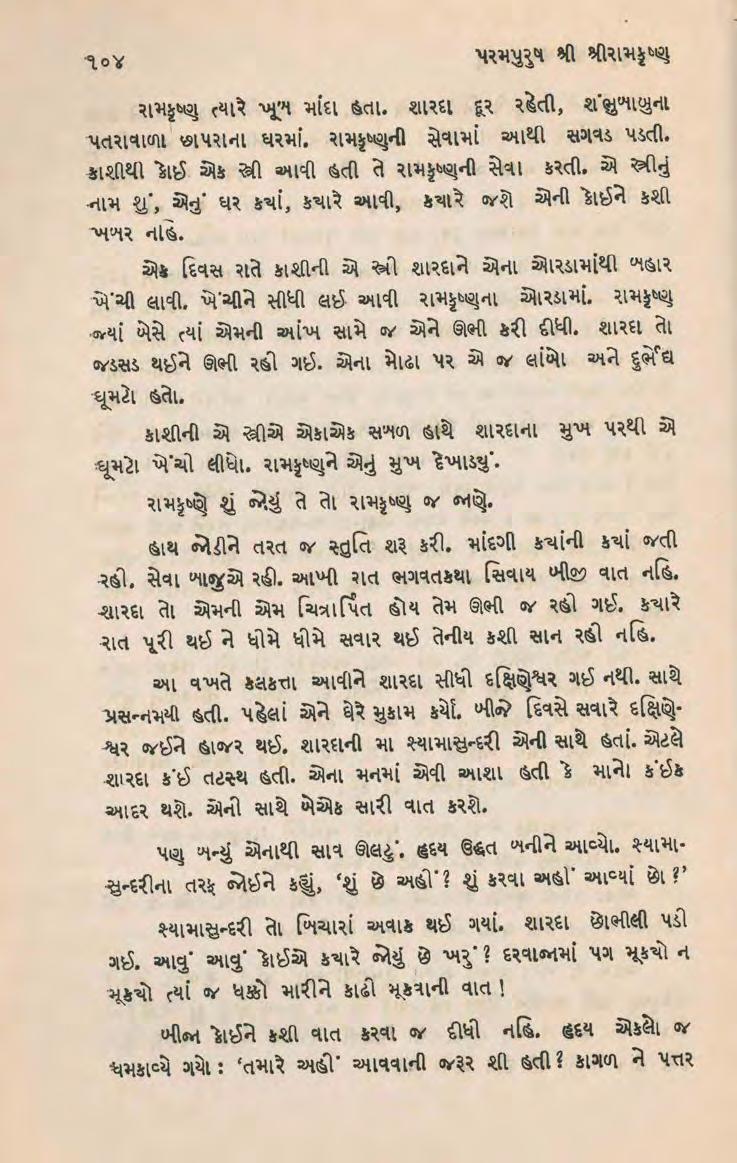 ૧૦૪ પરમપુરુષ શ્રી શ્રીરામકૃષ્ણ
રામકૃષ્ણ ત્યારે ખૂબ માંદા હતા. શારદા દૂર રહેતી, શંભુબાબુના
પતરાવાળા છાપરાના ઘરમાં. રામકૃષ્ણની સેવામાં આથી સગવડ પડતી.
કાશીથી કોઈ એક સ્ત્રી આવી હતી તે રામકૃષ્ણની સેવા કરતી. એ સ્ત્રીનું
નામ શું, એનું ઘર ક્યાં, ક્યારે આવી, ક્યારે જશે એની કોઈને કશી
ખબર નહિ.
એક દિવસ રાતે કાશીની એ સ્ત્રી શારદાને એના ઓરડામાંથી બહાર
ખેંચી લાવી. ખેંચીને સીધી લઈ આવી રામકૃષ્ણના ઓરડામાં. રામકૃષ્ણ
જ્યાં બેસે ત્યાં એમની આંખ સામે જ એને ઊભી કરી દીધી. શારદા તો
જડસડ થઈને ઊભી રહી ગઈ. એના મોઢા પર એ જ લાંબો અને દુર્ભેદ્ય
ઘૂમટો હતો.
કાશીની એ સ્ત્રીએ એકાએક સબળ હાથે શારદાના મુખ પરથી એ
ઘૂમટો ખેંચી લીધો. રામકૃષ્ણને એનું મુખ દેખાડ્યું.
રામકૃષ્ણે શું જોયું તે તો રામકૃષ્ણ જ જાણે.
હાથ જોડીને તરત જ સ્તુતિ શરૂ કરી. માંદગી ક્યાંની ક્યાં જતી
રહી. સેવા બાજુએ રહી. આખી રાત ભગવતકથા સિવાય બીજી વાત નહિ.
શારદા તો એમની એમ ચિત્રાર્પિત હોય તેમ ઊભી જ રહી ગઈ. ક્યારે
રાત પૂરી થઈ ને ધીમે ધીમે સવાર થઈ તેનીય કશી સાન રહી નહિ.
આ વખતે કલકત્તા આવીને શારદા સીધી દક્ષિણેશ્વર ગઈ નથી. સાથે
પ્રસન્નમયી હતી. પહેલાં એને ઘેરે મુકામ કર્યો. બીજે દિવસે સવારે દક્ષિણે-
શ્વર જઈને હાજર થઈ. શારદાની મા શ્યામાસુન્દરી એની સાથે હતાં. એટલે
શારદા કંઈ તટસ્થ હતી. એના મનમાં એવી આશા હતી કે માનો કંઈક
આદર થશે. એની સાથે બેએક સારી વાત કરશે.
પણ બન્યું એનાથી સાવ ઊલટું. હૃદય ઉદ્ધત બનીને આવ્યો. શ્યામા-
સુન્દરીના તરફ જોઈને કહ્યું, ‘શું છે અહીં? શું કરવા અહીં આવ્યાં છો?’
શ્યામાસુન્દરી તો બિચારાં અવાક થઈ ગયાં. શારદા છોભીલી પડી
ગઈ. આવું આવું કોઈએ ક્યારે જોયું છે ખરું? દરવાજામાં પગ મૂક્યો ન
મૂક્યો ત્યાં જ ધક્કો મારીને કાઢી મૂકવાની વાત!
બીજા કોઈને કશી વાત કરવા જ દીધી નહિ. હૃદય એકલો જ
ધમકાવ્યે ગયો : ‘તમારે અહીં આવવાની જરૂર શી હતી? કાગળ ને પત્તર